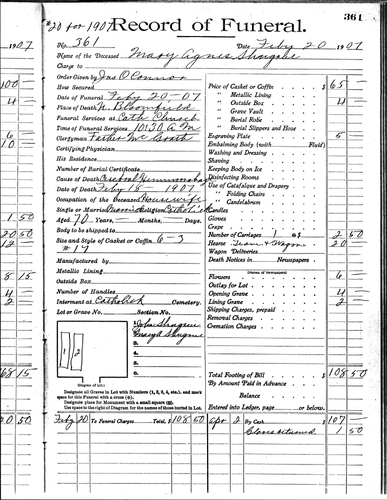 361
#20 for 1907
Record of Funeral.
No. 361
Date Feby 20 1907
Name of the Deceased Mary Agnes
Charge to
Order Given by Jas O Connor
How Secured
Date of Funeral Feby 20-07
Place of Death N. Bloomfield
Funeral Services at Cath Church
Time of Funeral Services 10:30 A M
Clergyman Father Mc Grath
Certifying Physician
His Residence
Number of Burial Certificate
Cause of Death Cerebral
Date of Death Feby 18 1907
Occupation of the Deceased Housewife
Single or Married Married Religion Catholick
Aged 70 Years, Months, Days.
Body to be shipped to
Size and Style of Casket or Coffin 6-3
#17
Manufactured by
Metallic Lining
Outside Box
Number of Handles
Interment at Catholick Cemetery.
Lot or Grave No. Section No.
1
2
3.
4.
5.
6.
(Diagram of Lot.)
Designate all Graves in Lot with Numbers (1, 2, 3, 4, etc.), and mark
space for this Funeral with a cross (+).
Designate place for Monument with a small square
Use space to the right of Diagram for the names of those buried in Lot.
Feby 20 To Funeral Charges Total, $ 108 50
Price of Casket or Coffin $ 65
" Metallic Lining
" Outside Box 4
" Grave Vault
" Burial Robe
" Burial Slippers and Hose
Engraving Plate 5
Embalming Body (with Fluid)
Washing and Dressing
Shaving
Keeping Body on Ice
Disinfecting Rooms
Use of Catafalque and Drapery
" Folding Chairs
" Candelabrum
Candles
Gloves
Crape
Number of Carriages 1 @ $ 2 50
Hearse Team & Wagon 20
Wagon Deliveries
Death Notices in Newspapers
(Names of Newspapers)
Flowers 6
Outlay for Lot
Opening Grave 4
Lining Grave 2
Shipping Charges, prepaid
Removal Charges
Cremation Charges
Total Footing of Bill $ 108 50
By Amount Paid in Advance
Balance
Entered into Ledger, page or below.
Apr 2 By Cash $ 107
Gloves returned 1 50